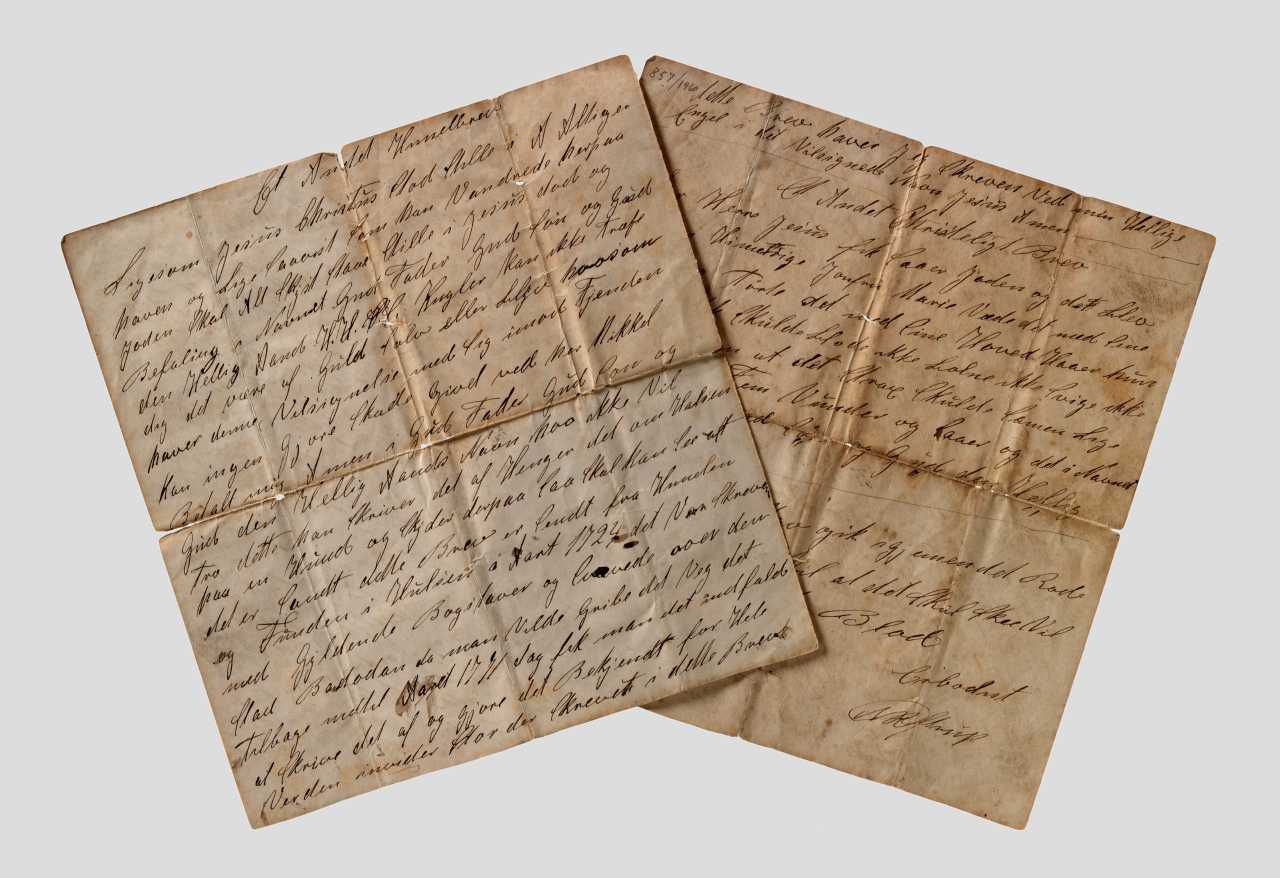 Et Andet Himelbrev
Ligesom Jesus Christus stod stille i A Altiger
haven og Lige saavist som han Vandrede herpaa
Jorden Skal Alt Skyst staae stille i Jesus død og
Befaling i Navnet Gud Fader Gud Søn og Gud
den Hellig Aand H.H. Kugler kan ikke træf
deg det være af Guld Sølv eller Blye hvosom
haver denne Velsignelse med sig imod Fjenden
kan ingen gjøre Skade Givet ved hor Mikkel
Befalt mig Amen i Gud Fader Gud Søn og
Gud den Hellig Aands Navn hvo ikke Vil
tro dette han Skriver det af Henger det om Halsen
paa en Hund og Skyder derpaa saa skal han see att
det er Sandt dette Brev er sendt fra Himlen
og Funden i Hulsen i Aart 1724 det Var Skrevet
med Gyldende Bogstaver og Svævede over den
stad Barlodan da man Vilde Gribe det Veg det
tilbage indtil Aaret 17 dag fik man det indfald
at Skrive det af og gjøre det Bekjendt for Hele
Verden invider staar der Skrevet i dette Brevet
857/1910
dette Brev haver Jeg Skreven Ved min Hellige
Engel i det Vilsignede Navn Jesus Amen
Et Andet Christeligt Brev
Herre Jesus fik Saaer Jorden og det blev
Himelrige Jomfru Marie Væde det med sine
Traae det med sine Hoved Haaer hun
Skulde Blode ikke Bolne ikke Svige ikke
om at det Strax Skulde Samen Lege
Fem Vunder og Saaer og det i Navnet
og Gud den Hellig
gik igjenem det Røde
at det Skal Skee Vil
Blod
Erbødist